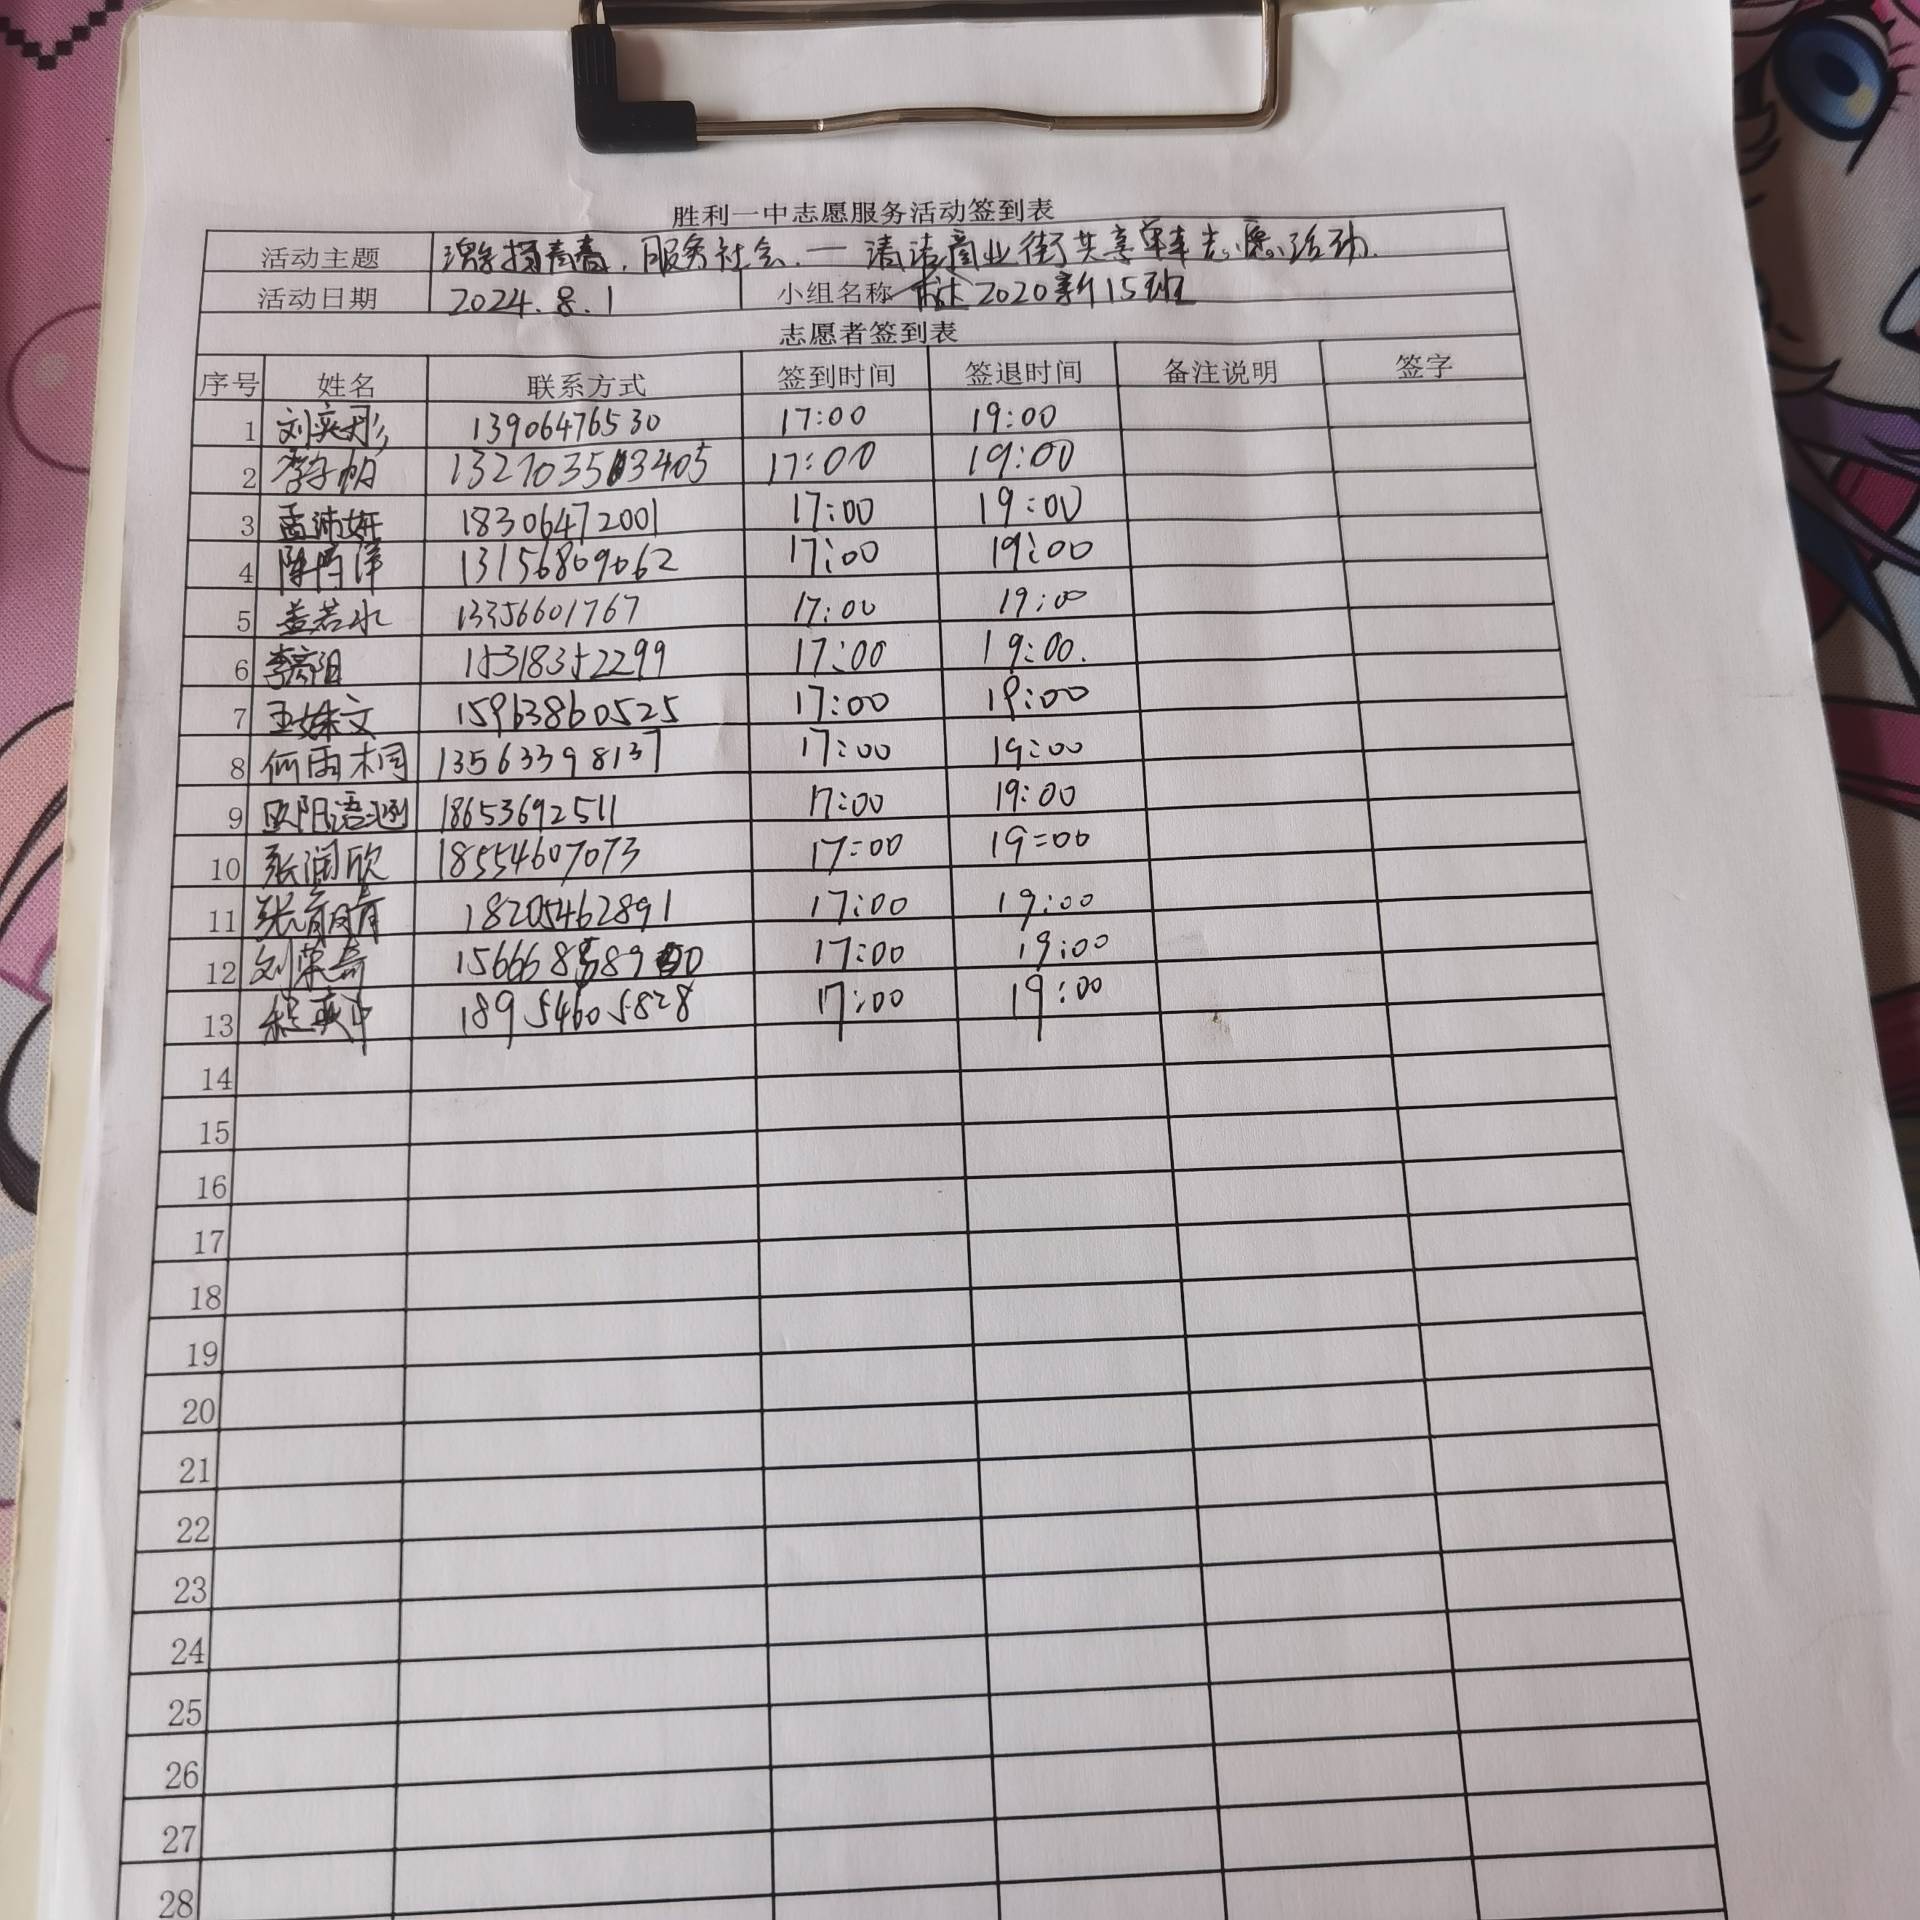 胜利一中志愿服务活动签到表
活动主题 激扬青春,服务社会.一清洁商业街共享单车志愿活动.
活动日期 2024.8.1 小组名称 2020新15班
志愿者签到表
序号 姓名 联系方式 签到时间 签退时间 备注说明 签字
1 刘奕彤 13906476530 17:00 19:00
2 李子帆 13270353405 17:00 19:00
3 孟沛妍 18306472001 17:00 19:00
4 13156809062 17:00 19:00
5 盖若水 13356601767 17:00 19:00
6 15318352299 17:00 19:00.
7 王姝文 15963860525 17:00 19:00
8 何雨桐 13563398137 17:00 19:00
9 欧阳语涵 18653692511 17:00 19:00
10 张润欣 18554607073 17:00 19:00
11 18205462891 17:00 19:00
12 17:00 19:00
13 18954605828 17:00 19:00
14
15
16
17
18
19
20
21
22
23
24
25
26
27
28